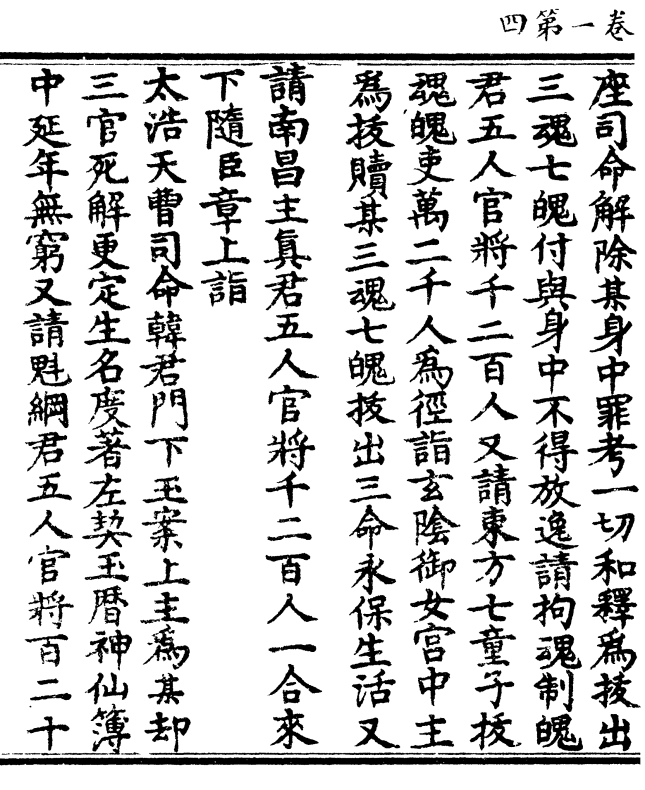 卷一第四
座司命解除某身中罪考一切和釋爲拔出
三魂七魄付與身中不得放逸請拘魂制魄
君五人官將千二百人又請東方七童子拔
魂魄吏萬二千人爲徑詣玄陰御女宮中主
爲拔贖某三魂七魄拔出三命永保生活又
請南昌主眞君五人官將千二百人一合來
下隨臣章上詣
太浩天曹司命韓君門下玉案上主爲某却
三官死解更定生名度著左契玉曆神仙簿
中延年無窮又請魁綱君五人官將百二十